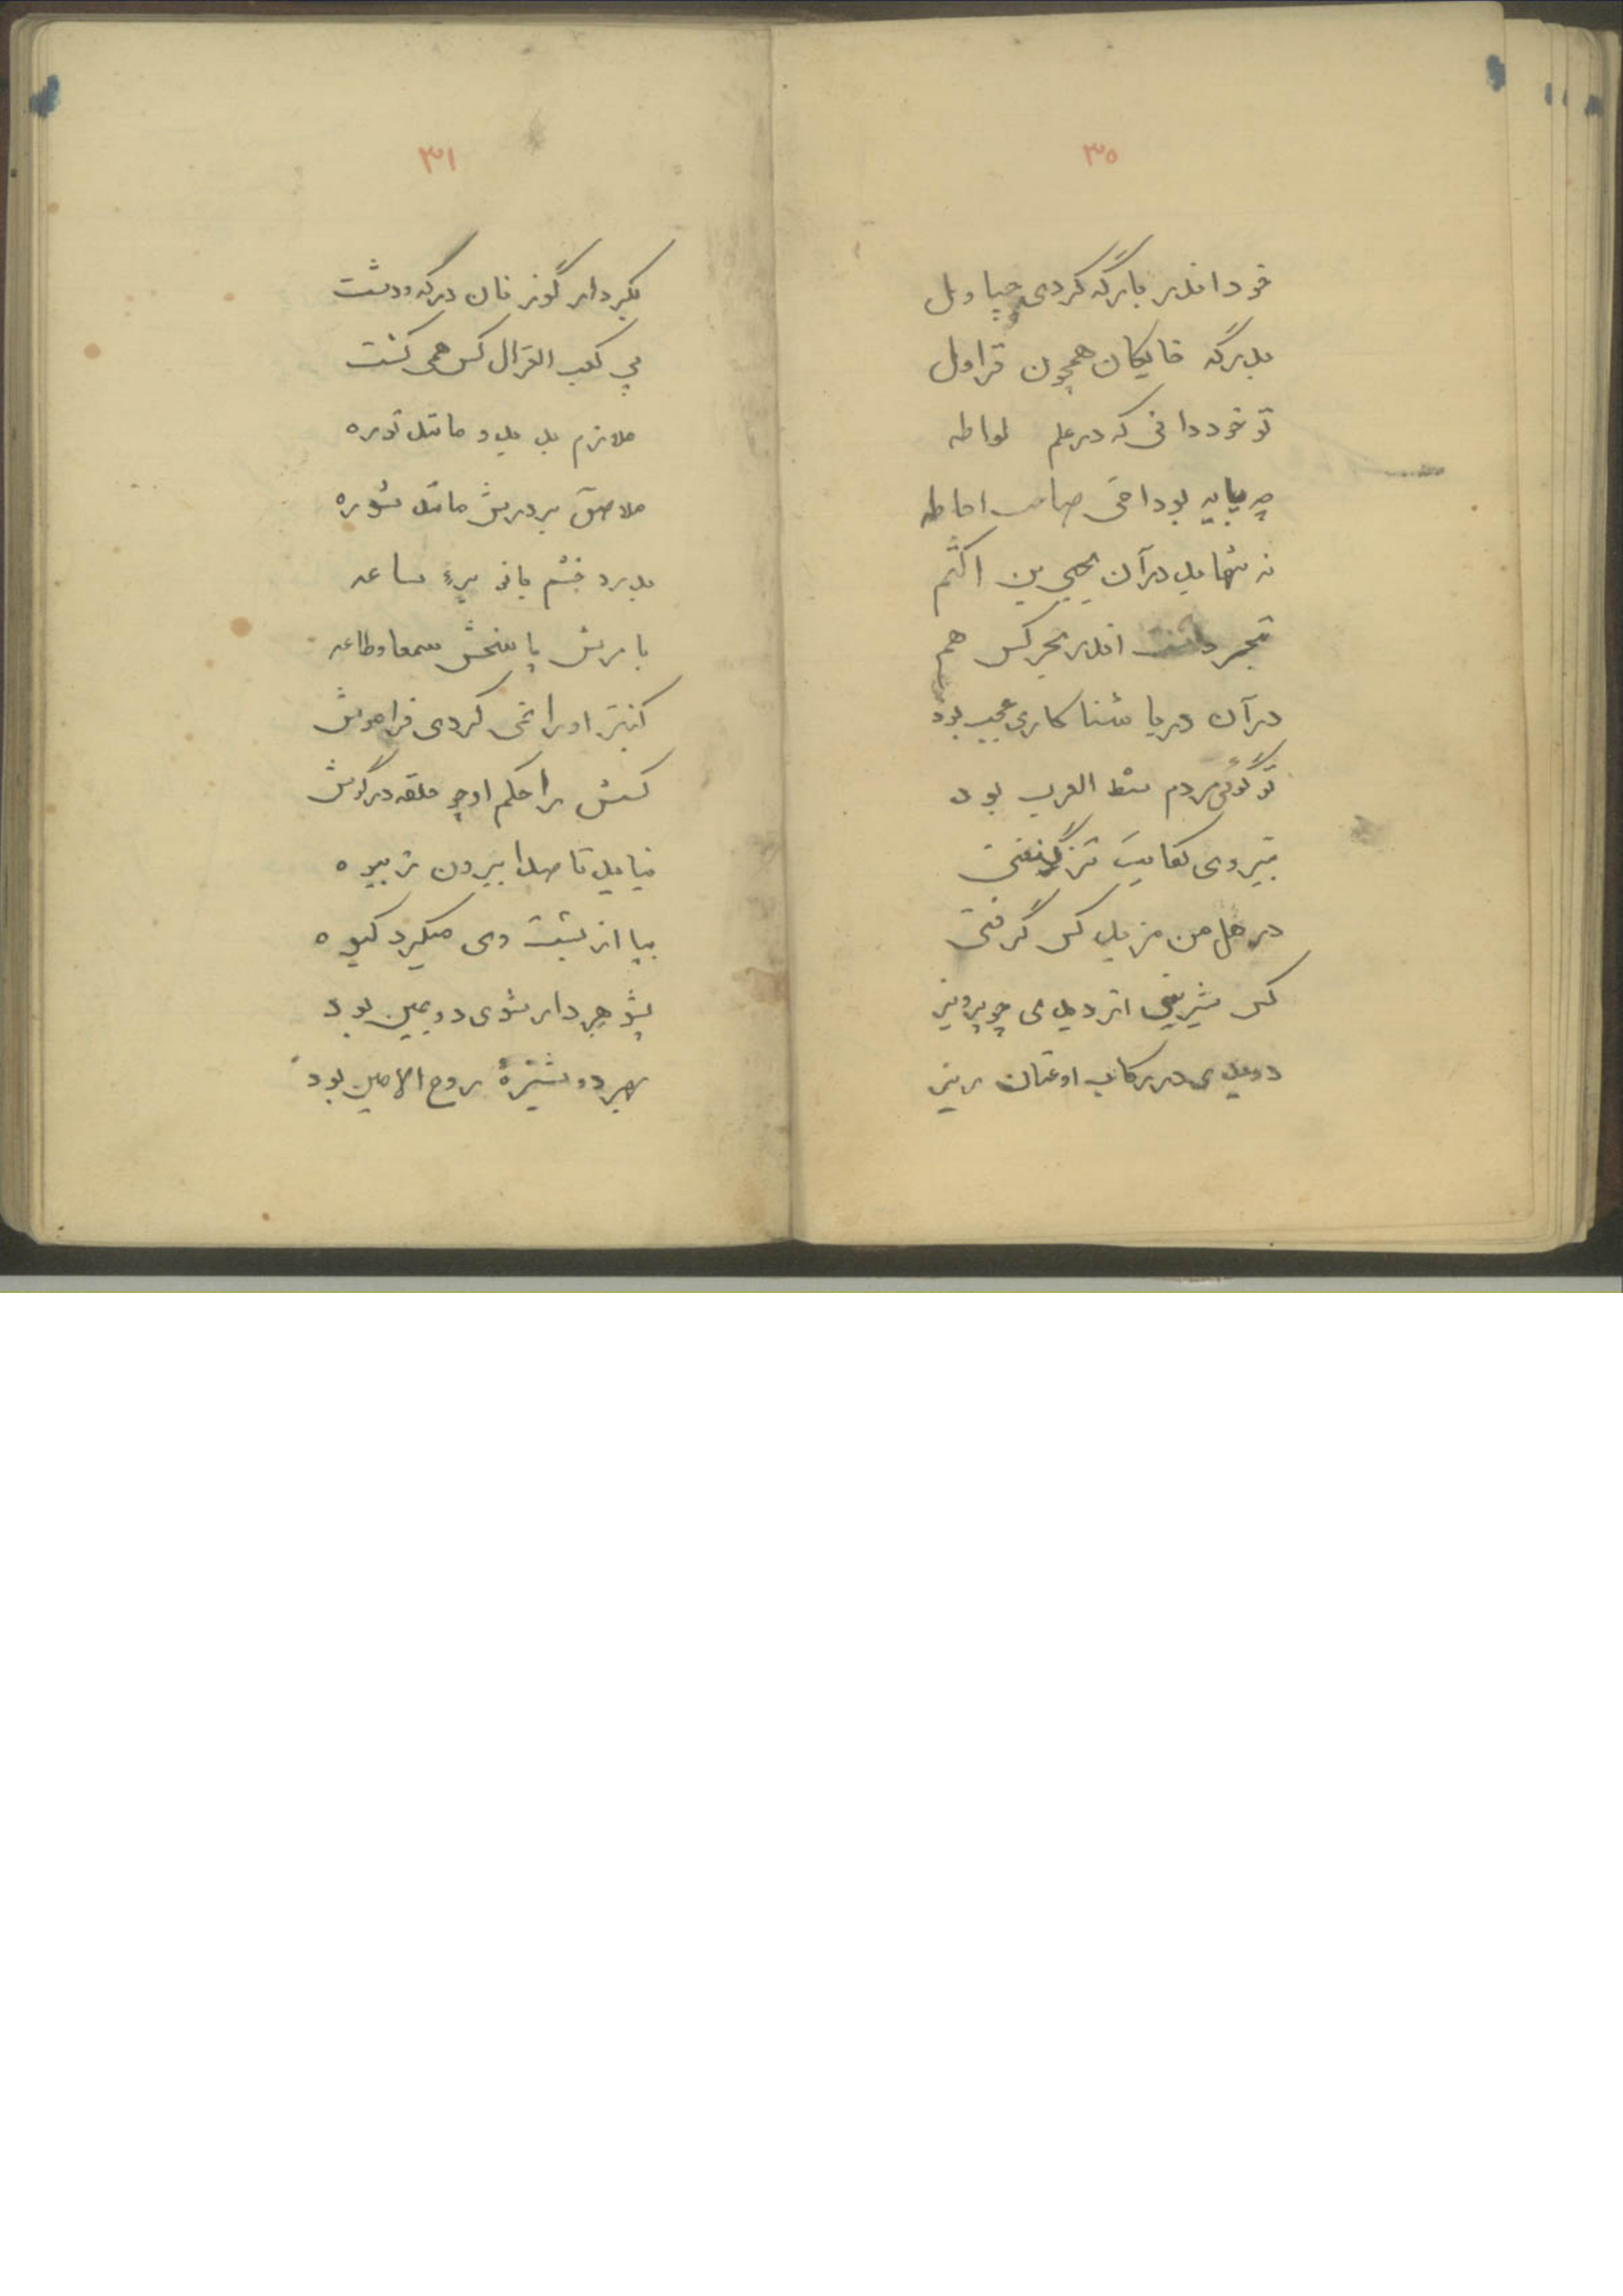 ۳۰
خود اندر بارگه کردی چپاول
بدرگه خایگان همچون قراول
تو خود دانی که در علم لواطه
چه پایه بود اخی صاحب احاطه
نه تنها بد در آن یحیی بن اکثم
تبحر داشت اندر بحر کس هم
در آن دریا شنا کاری عجب بود
تو گوئی مردم شط العرب بود
در هل من مزید کس گرفتی
کس شیرینی ار دیدی چو پرویز
دویدی در رکاب او عنان ریز
۳۱
بکردار گوزنان در که و دشت
پی کعب الغزال کس همی گشت
ملازم بد بد و مانند توره
ملاصق بر درش مانند شوره
بدبرد خشم بانو
با برش پاسخش سمعا وطاعه
کنیز او را نمی کردی فراموش
کسش را حکم او چو حلقه در گوش
نیامد تا صدا بیرون ز بیوه
بپا از پشت وی میکرد گیوه
بشوهردار شوی دویمین بود
بهر دوشیزهٔ روح الامین بود